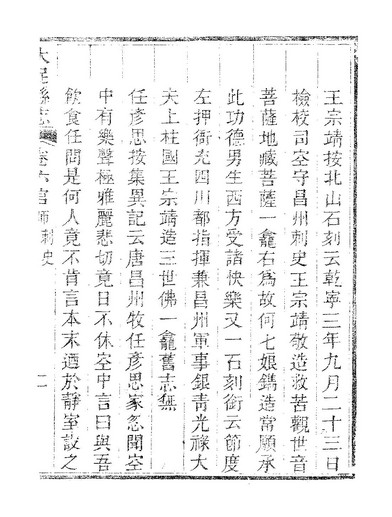 王宗靖按北山石刻云乾寧三年九月二十三日
檢校司空守昌州刺史王宗靖敬造救苦觀世音
菩薩地藏菩薩一龕右爲故何七娘鐫造當願承
此功德男生西方受諸快樂又一石刻銜云節度
左押衙充四川都指揮兼昌州軍事銀青光祿大
夫上柱國王宗靖造三世佛一龕舊志無
任彥思按集異記云唐昌州牧任彥思家忽聞空
中有樂聲極雅麗悲切竟日不休空中言曰與吾
飲食任問是何人竟不肯言本末適於靜室設之
大足縣志 卷六官師刺史 二